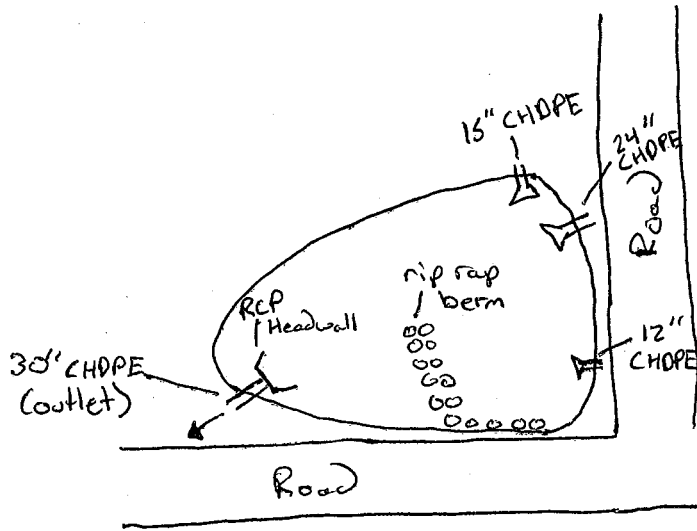 15" CHDPE
24"
CHDPE
Road
rip rap
berm
RCP
Headwall
12"
CHDPE
30" CHDPE
(outlet)
Road